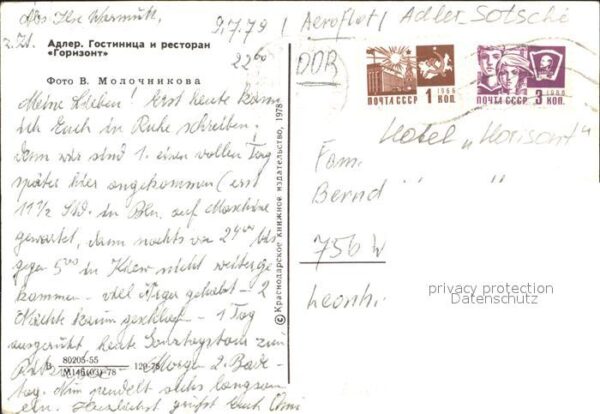 Abs Ilse Warmuth,
z. Zt.
9.7.79 / Aeroflot / Adler Sotschi
22⁰⁰
Адлер. Гостиница и ресторан
«Горизонт»
Фото В. Молочникова
DDR
ПОЧТА СССР 1966 1 КОП.
ПОЧТА СССР 1966 3 КОП.
Hotel „Horisont"
Fam.
Bernd " "
756 W
Leonh.
privacy protection
Datenschutz
Meine Lieben! Erst heute kann
ich Euch in Ruhe schreiben,
denn wir sind 1. einen vollen Tag
später hier angekommen (erst
11½ Std. in Bln. auf Maschine
gewartet, dann nachts von 24⁰⁰ bis
gegen 5⁰⁰ in Kiew nicht weiterge
kommen - viel Ärger gehabt - 2
Nächte kaum geschlaf - 1 Tag
ausgeruht heute Sonntagstour zum
Morgen 2. Bade-
tag. Nun pendelt sichs langsam
ein. Herzlichst grüßt Euch Omi
В 80205-55 120-78
М146(03)-78
© Краснодарское книжное издательство, 1978